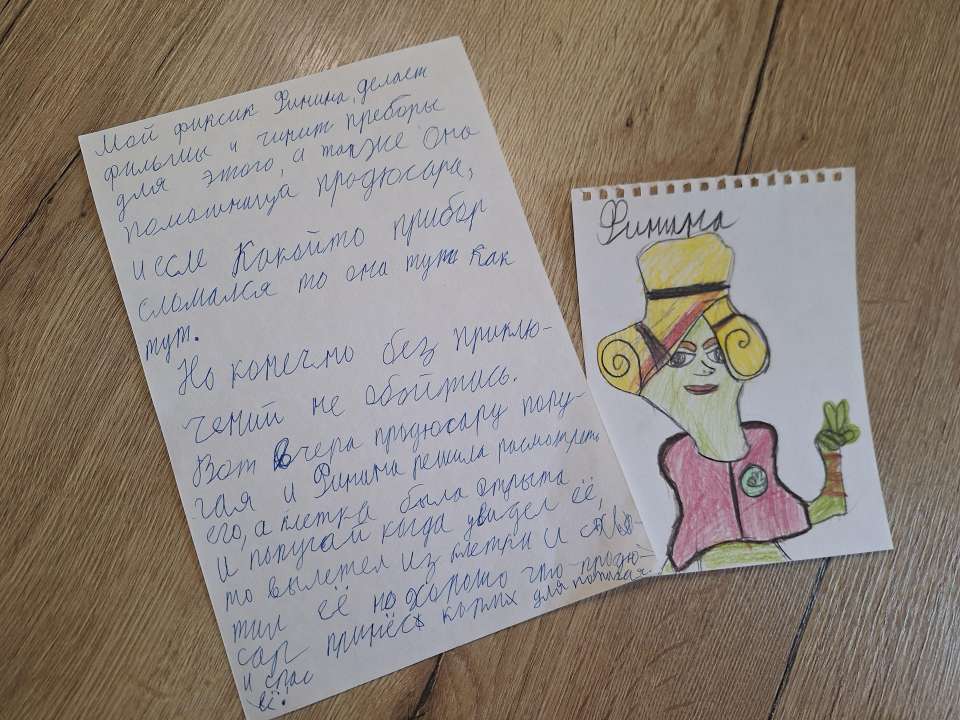 Мой фиксик Финина, делает
фильмы и чинит преборы
для этого, а также она
помошница продюсара,
и есле Какойто прибор
сломался то она тут как
тут.
Но конечно без приклю-
чений не обойтись.
Вот вчера продюсару
и Финина решила расмотреть
его, а клетка была открыта
и попугай когда увидел её,
то вылетел из клетки и
её но хорошо что продю-
сар принёс корм для попугая
и спас
её.
Финина